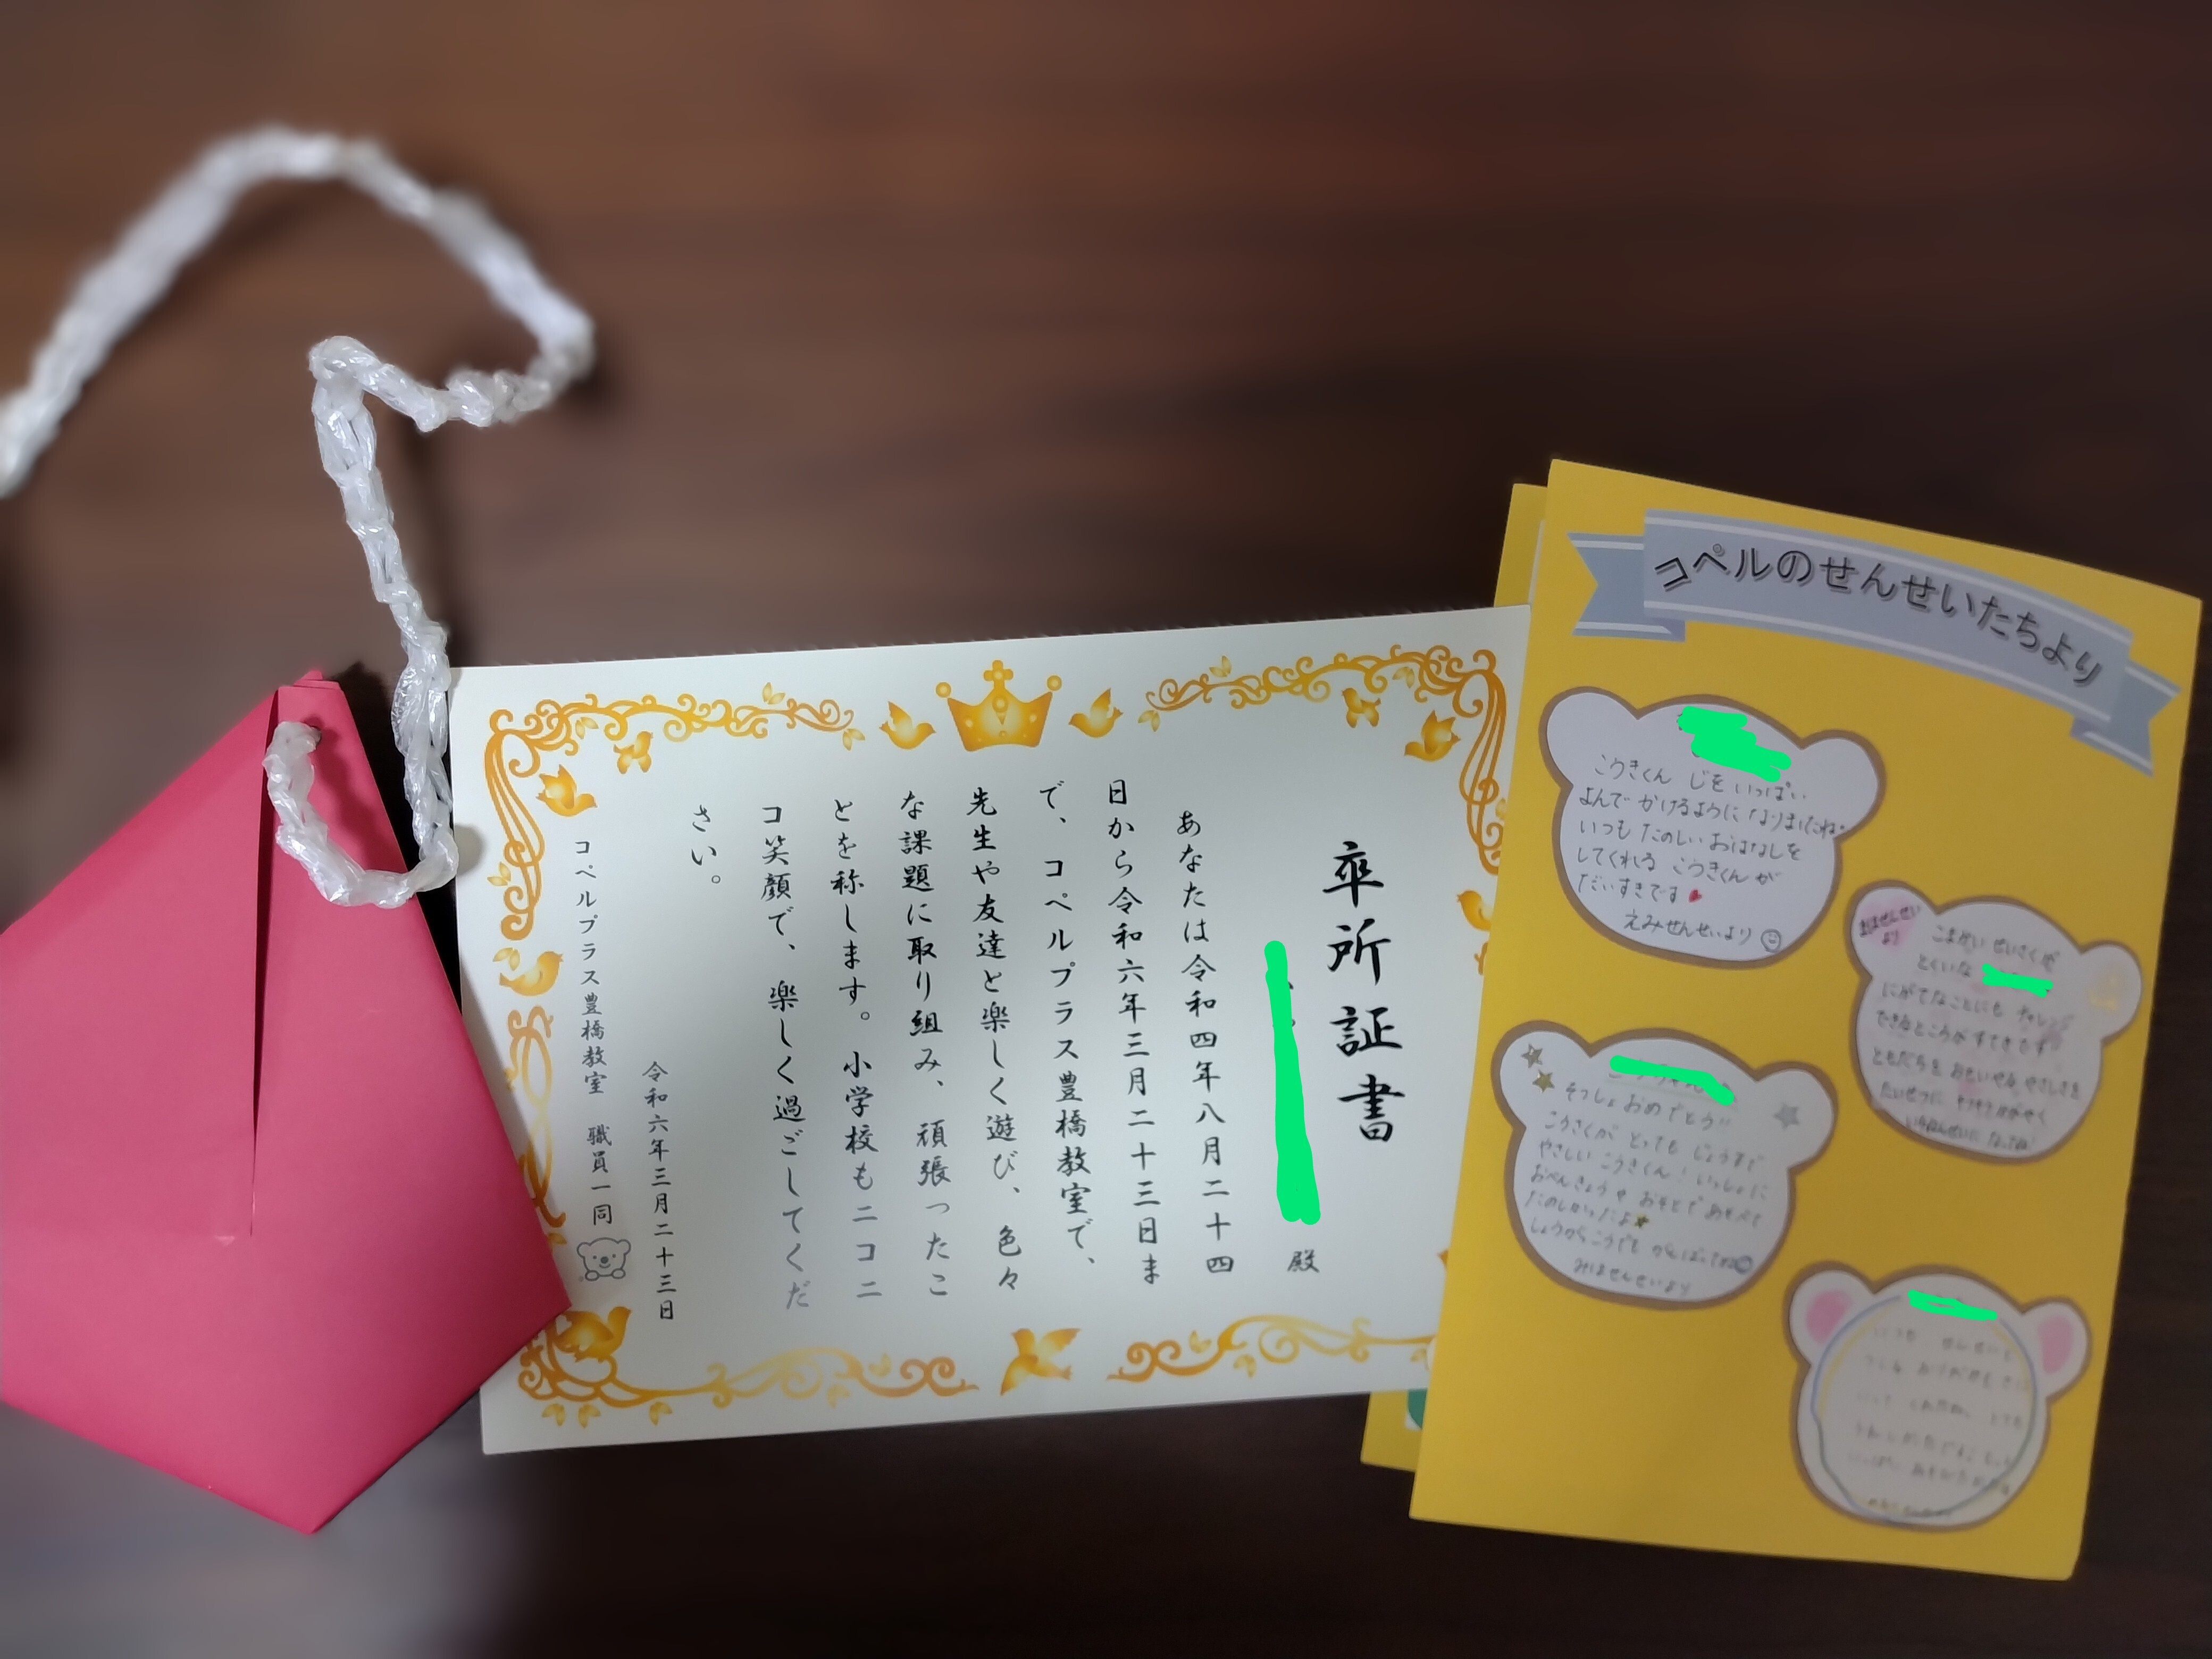 卒所証書
殿
あなたは令和四年八月二十四
日から令和六年三月二十三日ま
で、コペルプラス豊橋教室で、
先生や友達と楽しく遊び、色々
な課題に取り組み、頑張ったこ
とを称します。小学校もニコニ
コ笑顔で、楽しく過ごしてくだ
さい。
令和六年三月二十三日
コペルプラス豊橋教室 職員一同
コペルのせんせいたちより
こうきくん じを いっぱい
よんで かけるように なりましたね。
いつも たのしい おはなしを
してくれる こうきくん が
だいすきです
えみせんせいより
せんせい
より
こまかい せいさくが
とくいな
にがてなことにも チャレンジ
できるところが すてきです
ともだちを おもいやる やさしさを
たいせつに キラキラ かがやく
いちねんせいに なってね!
そつしょ おめでとう
こうさくが とっても じょうずで
やさしい こうきくん! いっしょに
おべんきょうや おそとで あそべて
たのしかったよ
しょうがっこうでも がんばってね
みはせんせいより
いつも せんせい